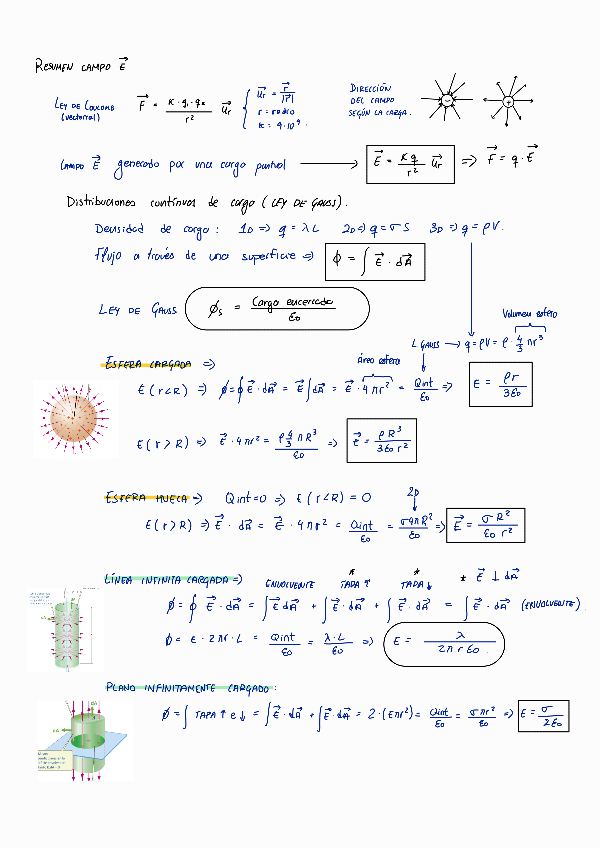 RESUMEN CAMPO E⃗
LEY DE COULOMB (vectorial) F⃗ = K · q₁ · q₂ / r² u⃗r { u⃗r = r⃗ / |r⃗|
r = radio
K = 9·10⁹.
DIRECCIÓN DEL CAMPO SEGÚN LA CARGA. - +
CAMPO E⃗ generado por una carga puntual → E⃗ = K q / r² u⃗r => F⃗ = q · E⃗
Distribuciones continuas de carga (LEY DE GAUSS).
Densidad de carga: 1D => q = λ L 2D => q = σ S 3D => q = ρ V.
Flujo a través de una superficie => ϕ = ∫ E⃗ · dA⃗
LEY DE GAUSS ϕs = Carga encerrada / ε₀
Volumen esfera
L GAUSS → q = ρV = ρ · 4/3 π r³
ESFERA CARGADA => área esfera
E (r < R) => ϕ = ∮ E⃗ · dA⃗ = E⃗ ∫ dA⃗ = E⃗ · 4πr² = Qint / ε₀ => E = ρ r / 3ε₀
E (r > R) => E⃗ · 4πr² = ρ 4/3 π R³ / ε₀ => E⃗ = ρ R³ / 3ε₀ r²
ESFERA HUECA => Qint = 0 => E (r < R) = 0 2D
E (r > R) => E⃗ · dA⃗ = E⃗ · 4πr² = Qint / ε₀ = σ 4π R² / ε₀ => E⃗ = σ R² / ε₀ r²
LÍNEA INFINITA CARGADA => ENVOLVENTE * TAPA ↑ * TAPA ↓ * E⃗ ⊥ dA⃗
ϕ = ∮ E⃗ · dA⃗ = ∫ E⃗ dA⃗ + ∫ E⃗ · dA⃗ + ∫ E⃗ · dA⃗ = ∫ E⃗ · dA⃗ (ENVOLVENTE)
ϕ = E · 2πr · L = Qint / ε₀ = λ · L / ε₀ => E = λ / 2π r ε₀.
PLANO INFINITAMENTE CARGADO:
ϕ = ∫ TAPA ↑ e ↓ = ∫ E⃗ · dA⃗ + ∫ E⃗ · dA⃗ = 2 · (Eπr²) = Qint / ε₀ = σ πr² / ε₀ => E = σ / 2ε₀